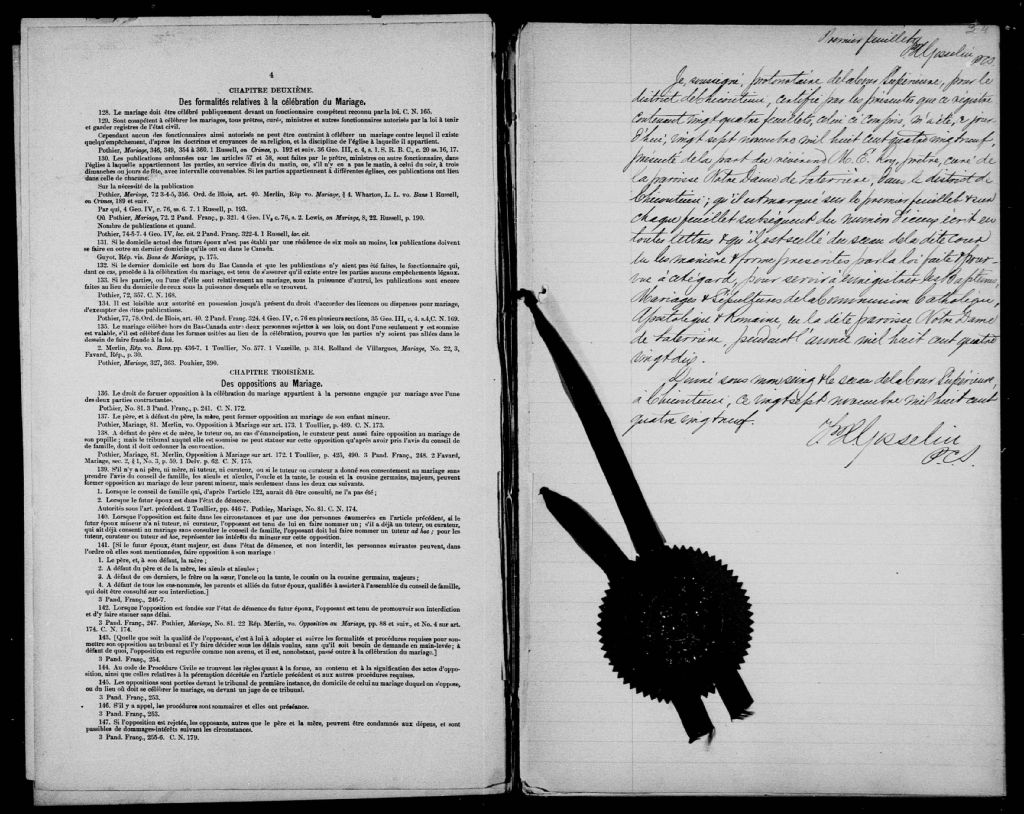 4
CHAPITRE DEUXIÈME.
Des formalités relatives à la célébration du Mariage.
128. Le mariage doit être célébré publiquement devant un fonctionnaire compétent reconnu par la loi. C. N. 165.
129. Sont compétent à célébrer les mariages, tous prêtres, curés, ministres et autres fonctionnaires autorisés par la loi à tenir
et garder registres de l'état civil.
Cependant aucun des fonctionnaires ainsi autorisés ne peut être contraint à célébrer un mariage contre lequel il existe
quelqu'empêchement, d'après les doctrines et croyances de sa religion, et la discipline de l'église à laquelle il appartient.
Pothier, Mariage, 346, 349, 354 à 360. 1 Russell, on Crimes, p. 192 et suiv. 36 Geo. III, c. 4, s. 1. S. R. B. C., c. 20 ss. 16, 17.
130. Les publications ordonnées par les articles 57 et 58, sont faites par le prêtre, ministre ou autre fonctionnaire dans
l'église à laquelle appartiennent les parties, au service divin du matin, ou, s'il n'y en a pas le matin, à celui du soir, à trois
dimanches ou jours de fête, avec intervalle convenables. Si les parties appartiennent à différentes églises, ces publications ont lieu
dans celle de chacune.
Sur la nécessité de la publication
Pothier, Mariage, 72 3-4-5, 356. Ord. de Blois, art. 40. Merlin, Rép vo. Mariage, § 4. Wharton, L. L. vo. Bans 1 Russell,
on Crimes, 189 et suiv.
Par qui, 4 Geo. IV, c. 76, ss. 6. 7. 1 Russell, p. 193.
Où Pothier, Mariage, 72. 2 Pand. Franç., p. 321. 4 Geo. IV, c. 76, s. 2. Lewis, on Mariage, 8, 22. Russell, p. 190.
Nombre de publications et quand.
Pothier, 74-5-7. 4 Geo. IV, loc. cit. 2 Pand. Franç. 322-4. 1 Russell, loc. cit.
131. Si le domicile actuel des futurs époux n'est pas établi par une résidence de six mois au moins, les publications doivent
se faire en outre au dernier domicile qu'ils ont eu dans le Canada.
Guyot, Rép. vis. Bans de Mariage, p. 175.
132. Si le dernier domicile est hors du Bas-Canada et que les publications n'y aient pas été faites, le fonctionnaire qui,
dans ce cas, procède à la célébration du mariage, est tenu de s'assurer qu'il existe entre les parties aucuns empêchements légaux.
133. Si les parties, ou l'une d'elle sont relativement au mariage, sous la puissance d'autrui, les publications sont encore
faites au lieu du domicile de ceux sous la puissance desquels elle se trouvent.
Pothier, 72, 357. C. N. 168.
134. Il est loisible aux autorité en possession jusqu'à présent du droit d'accorder des licences ou dispenses pour mariage,
d'exempter des dites publications.
Pothier, 77, 78. Ord. de Blois, art. 40. 2 Pand. Franç. 324. 4 Geo. IV, c. 76 en plusieurs sections, 35 Geo. III, c, 4. s.4, C. N. 169.
135. Le mariage célébré hors du Bas-Canada entre deux personnes sujettes à ses lois, ou dont l'une seulement y est soumise
est valable, s'il est célébré dans les formes usitées au lieu de la célébration, pourvu que les parties n'y soient pas allées dans le
dessein de faire fraude à la loi.
2. Merlin, Rép. vo. Bans. pp. 436-7. 1 Toullier, No. 577. 1 Vazeille, p. 314. Rolland de Villargues, Mariage, No. 22, 3,
Favard, Rép., p. 30.
Pothier, Mariage, 327, 363. Pouhier, 390.
CHAPITRE TROISIÈME.
Des oppositions au Mariage.
136. Le droit de former opposition à la célébration du mariage appartient à la personne engagée par mariage avec l'une
des deux parties contractantes.
Pothier, No. 81. 3 Pand. Franç., p. 241. C. N. 172.
137. Le père, et à défaut du père, la mère, peut former opposition au mariage de son enfant mineur.
Pothier, Mariage, 81. Merlin, vo. Opposition à Mariage sur art. 173. 1 Toullier, p. 489. C. N. 173.
138. A défaut de père et de mère, le tuteur ou, au cas d'émancipation, le curateur peut aussi faire opposition au mariage de
son pupille; mais le tribunal auquel elle est soumise ne peut statuer sur cette opposition qu'après avoir pris l'avis du conseil de
famille, dont il doit ordonner la convocation.
Pothier, Mariage, 81. Merlin, Opposition à Mariage sur art. 172. 1 Toullier, p. 425, 490. 3 Pand. Franç., 248. 2 Favard,
Mariage, sec. 2, § 1, No. 3, p. 59. 1 Delv. p. 62. C. N. 175.
139. S'il n'y a ni père, ni mère, ni tuteur, ni curateur, ou si le tuteur ou curateur a donné son consentement au mariage sans
prendre l'avis du conseil de famille, les aieuls et aïeules, l'oncle et la tante, le cousin et la cousine germains, majeurs, peuvent
former opposition au mariage de leur parent mineur, mais seulement dans les deux cas suivants.
1. Lorsque le conseil de famille qui, d'après l'article 122, aurait dû être consulté, ne l'a pas été;
2. Lorsque le futur époux est dans l'état de démence.
Autorités sous l'art. précédent. 2 Toullier, pp. 446-7. Pothier, Mariage, No. 81. C. N. 174.
140. Lorsque l'opposition est faite dans les circonstances et par une des personnes énumérées en l'article précédent, si le
futur époux mineur n'a ni tuteur, ni curateur, l'opposant est tenu de lui en faire nommer un; s'il a déjà un tuteur, ou curateur,
qui ait déjà consenti au mariage sans consulter le conseil de famille, l'opposant doit lui faire nommer un tuteur ad hoc; pour les
tuteur, curateur ou tuteur ad hoc, représenter les intérêts du mineur sur cette opposition.
141. [Si le futur époux, étant majeur, est dans l'état de démence, et non interdit, les personnes suivantes peuvent, dans
l'ordre où elles sont mentionnées, faire opposition à son mariage:
1. Le père, et, à son défaut, la mère;
2. A défaut du père et de la mère, les aïeuls et aïeules;
3. A défaut de ces derniers, le frère ou la sœur, l'oncle ou la tante, le cousin ou la cousine germains, majeurs;
4. A défaut de tous les sus-nommés, les parents et alliés du futur époux, qualifiés à assister à l'assemblée du conseil de famille,
qui doit être consulté sur son interdiction.]
3 Pand. Franç., 246-7.
142. Lorsque l'opposition est fondée sur l'état de démence du futur époux, l'opposant est tenu de promouvoir son interdiction
et d'y faire statuer sans délai.
3 Pand. Franç., 247. Pothier, Mariage, No. 81. 22 Rép. Merlin, vo. Opposition au Mariage, pp 88 et suiv., et No. 4 sur art.
174. C. N. 174.
143. [Quelque que soit la qualité de l'opposant, c'est à lui à adopter et suivre les formalités et procédures requises pour sou-
mettre son opposition au tribunal et l'y faire décider sous les délais voulus, sans qu'il soit besoin de demande en main-levée; à
défaut de quoi, l'opposition est regardée comme non avenu, et il est, nonobstant, passé outre à la célébration du mariage.]
3 Pand. Franç., 254.
144. Au code de Procédure Civile se trouvent les règles quant à la forme, au contenu et à la signification des actes d'oppo-
sition, ainsi que celles relatives à la péremption décrétée en l'article précédent et aux autres procédures requises.
145. Les oppositions sont portées devant le tribunal de première instance, du domicile de celui au mariage duquel on s'oppose,
ou du lieu où doit se célébrer le mariage, ou devant un juge de ce tribunal.
3 Pand. Franç., 253.
146. S'il y a appel, les procédures sont sommaires et elles ont préséance.
3 Pand. Franç., 253.
147. Si l'opposition est rejetée, les opposants, autres que le père et la mère, peuvent être condamnés aux dépens, et sont
passibles de dommages-intérêts suivant les circonstances.
3 Pand. Franç., 255-6. C. N. 179.
Premier feuillet
Gosselin PCS
Je soussigné, protonotaire de la Cour Supérieure, pour le
district de Chicoutimi, certifie par les présentes que ce régistre
contenant vingt quatre feuillets, celui ci compris, m'a été, ce jour-
d'hui, vingt sept novembre mil huit cent quatre vingt neuf,
présenté de la part du révérend M. E. Roy, prêtre, curé de
la paroisse Notre Dame de Laterrière, dans le district de
Chicoutimi; qu'il est marqué sur le premier feuillet & sur
chaque feuillet subséquent du numéro d'iceux écrit en
toutes lettres & qu'il est scellé du sceau de la dite cour
en la manière & forme prescrites par la loi faite & pour-
vue à cet égard, pour servir à l'enregistrer les Baptêmes,
Mariages & Sépultures de la Communion Catholique,
Apostolique & Romaine, en la dite paroisse Notre Dame
de Laterrière, pendant l'année mil huit cent quatre
vingt dix.
Donné sous mon seing & le sceau de la Cour Supérieure,
à Chicoutimi, ce vingt sept novembre mil huit cent
quatre vingt neuf.
Gosselin
P.C.S.